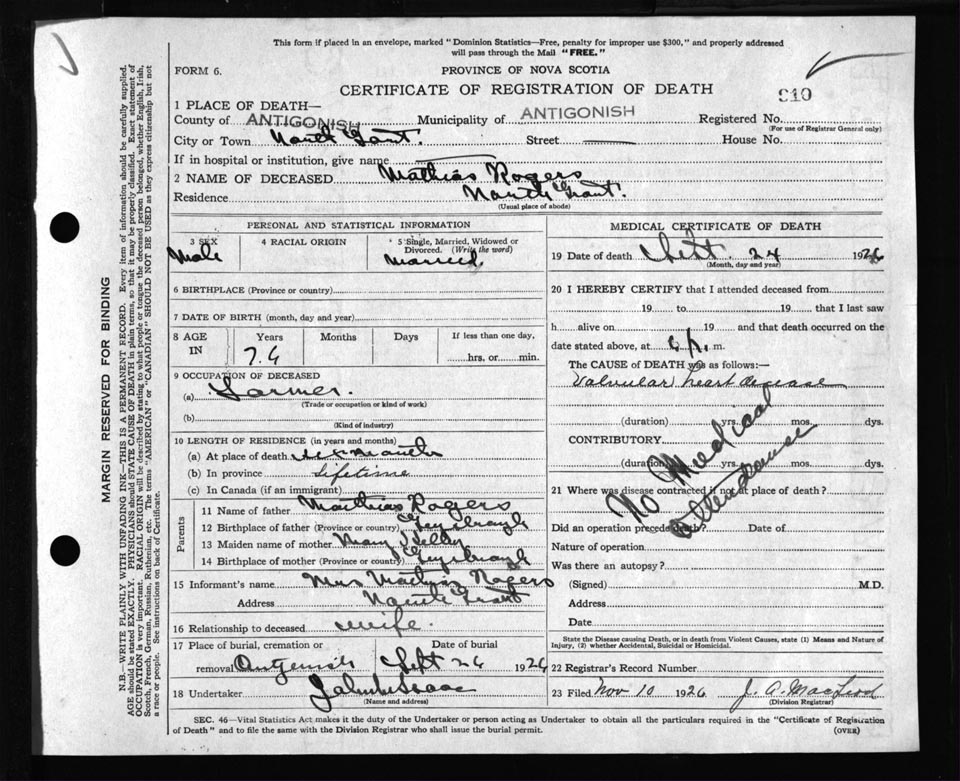 This form if placed in an envelope, marked "Dominion Statistics—Free, penalty for improper use $300," and properly addressed
will pass through the Mail "FREE."
FORM 6.
PROVINCE OF NOVA SCOTIA
CERTIFICATE OF REGISTRATION OF DEATH
910
1 PLACE OF DEATH—
County of ANTIGONISH Municipality of ANTIGONISH Registered No.
(For use of Registrar General only)
City or Town North Grant. Street — House No.
If in hospital or institution, give name
2 NAME OF DECEASED Mathias Rogers
Residence North Grant.
(Usual place of abode)
PERSONAL AND STATISTICAL INFORMATION
3 SEX 4 RACIAL ORIGIN 5 Single, Married, Widowed or
Divorced. (Write the word)
Male Married.
6 BIRTHPLACE (Province or country)
7 DATE OF BIRTH (month, day and year)
8 AGE Years Months Days If less than one day,
IN 76 hrs. or min.
9 OCCUPATION OF DECEASED
(a) Farmer
(Trade or occupation or kind of work)
(b)
(Kind of industry)
10 LENGTH OF RESIDENCE (in years and months)
(a) At place of death
(b) In province lifetime
(c) In Canada (if an immigrant)
Parents
11 Name of father Matthias Rogers
12 Birthplace of father (Province or country) Guysborough
13 Maiden name of mother Mary
14 Birthplace of mother (Province or country) Guysborough
15 Informant's name Mrs Mathias Rogers
Address North Grant
16 Relationship to deceased wife.
17 Place of burial, cremation or Date of burial
removal Antigonish Sept 26 1926
18 Undertaker John
(Name and address)
MEDICAL CERTIFICATE OF DEATH
19 Date of death Sept. 24 1926
(Month, day and year)
20 I HEREBY CERTIFY that I attended deceased from
19 to 19 that I last saw
h alive on 19 and that death occurred on the
date stated above, at m.
The CAUSE OF DEATH was as follows:
Valvular heart disease
(duration) yrs. mos. dys.
CONTRIBUTORY
(duration) yrs. mos. dys.
No Medical
attendance
21 Where was disease contracted if not at place of death?
Did an operation precede death? Date of
Nature of operation
Was there an autopsy?
(Signed) M.D.
Address
Date
State the Disease causing Death, or in death from Violent Causes, state (1) Means and Nature of
Injury, (2) whether Accidental, Suicidal or Homicidal.
22 Registrar's Record Number
23 Filed Nov 10 1926 J. A. MacLeod
(Division Registrar)
SEC. 46—Vital Statistics Act makes it the duty of the Undertaker or person acting as Undertaker to obtain all the particulars required in the "Certificate of Registration
of Death" and to file the same with the Division Registrar who shall issue the burial permit. (OVER)
MARGIN RESERVED FOR BINDING
N.B.—WRITE PLAINLY WITH UNFADING INK—THIS IS A PERMANENT RECORD. Every item of information should be carefully supplied.
AGE should be stated EXACTLY. PHYSICIANS should STATE CAUSE OF DEATH in plain terms, so that it may be properly classified. Exact statement of
OCCUPATION is very important. RACIAL ORIGIN will be described by stating to what people or tongue the deceased person belonged, whether English, Irish,
Scotch, French, German, Russian, Ruthenian, etc. The terms "AMERICAN" or "CANADIAN" SHOULD NOT BE USED as they express citizenship but not
a race or people. See instructions on back of Certificate.